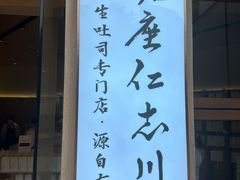 座仁志川
生吐司专门店·源自